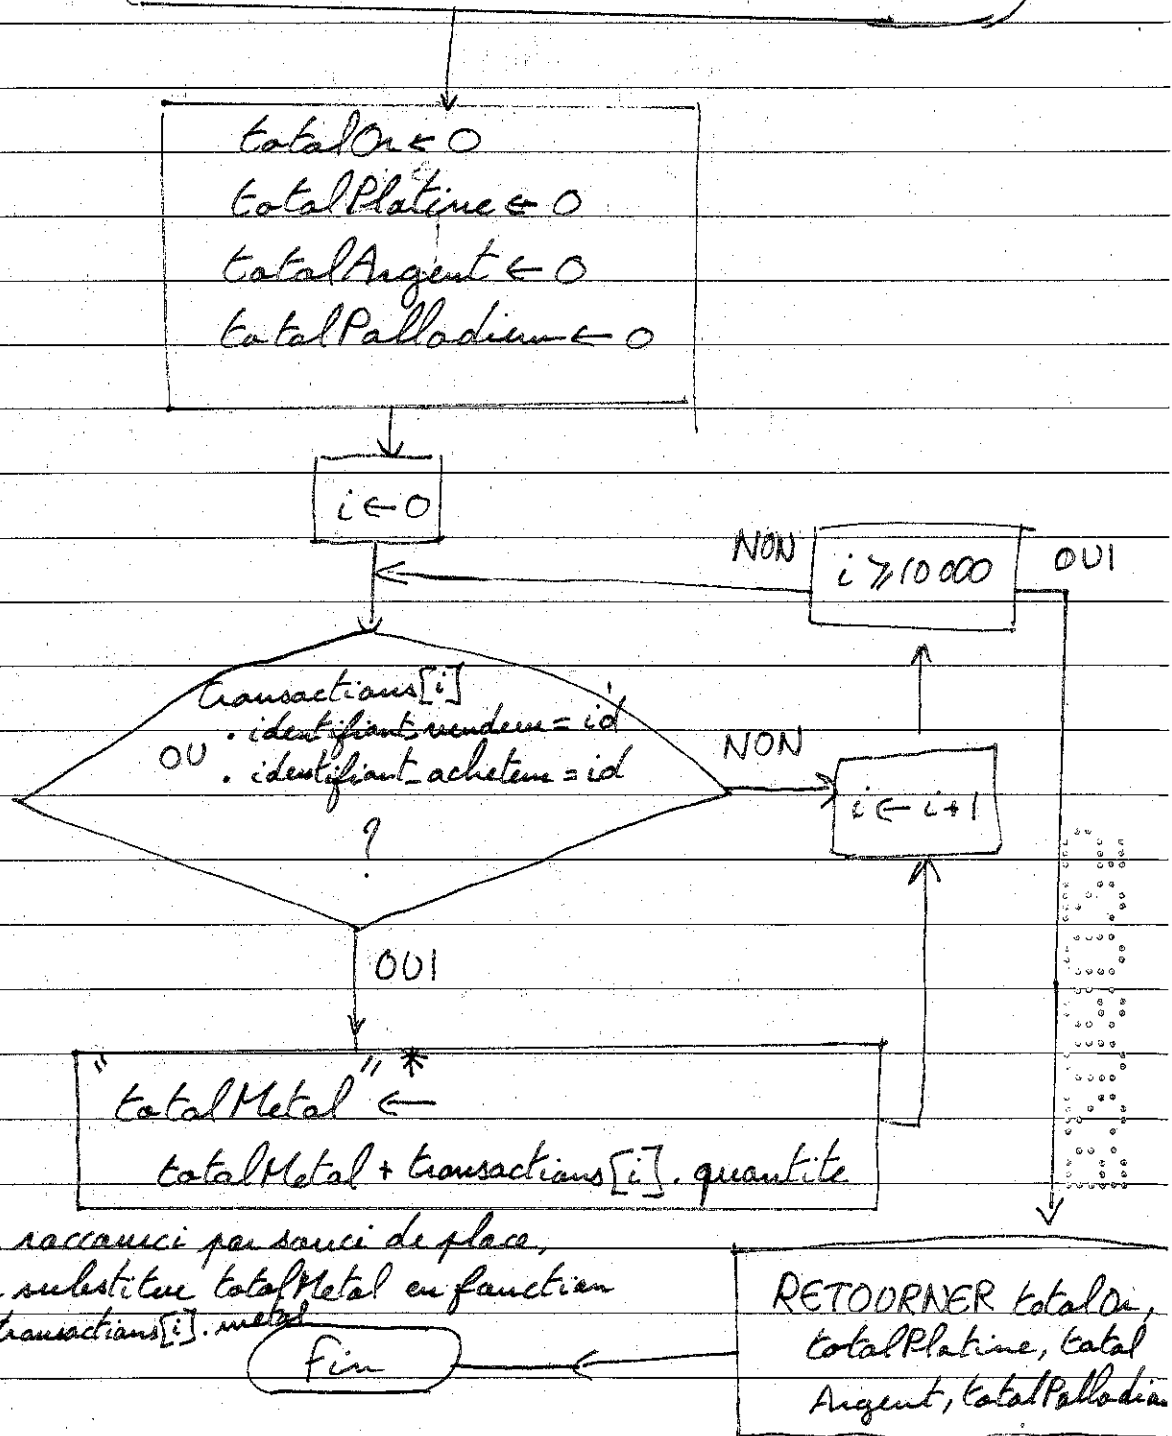 totalOr ← 0
totalPlatine ← 0
totalArgent ← 0
totalPalladium ← 0
i ← 0
NON
i ⩾ 10000
OUI
transactions[i]
. identifiant_vendeur = id
OU
. identifiant_acheteur = id
?
NON
i ← i+1
OUI
"totalMetal" * ←
totalMetal + transactions[i].quantite
raccourci par souci de place,
substitue totalMetal en fonction
transactions[i].metal
Fin
RETOURNER totalOr,
totalPlatine, total
Argent, totalPalladiu